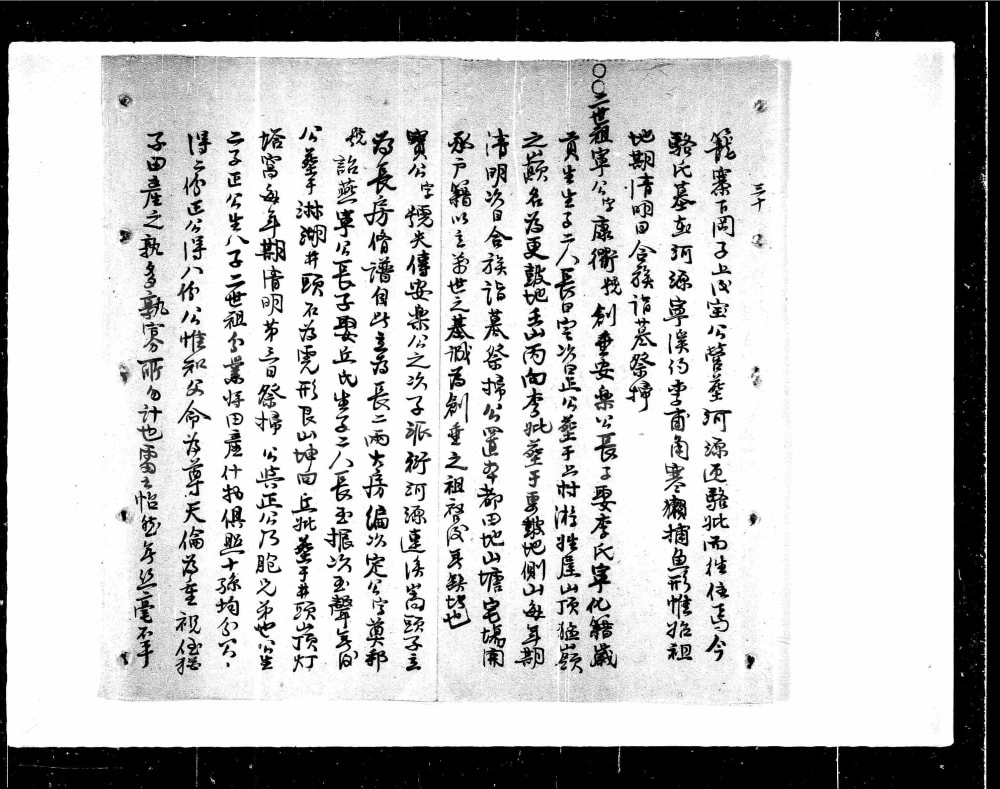 三十
籠寨下岡子上茂宝公營葬河源迎駱妣而往住焉今
駱氏墓在河源寧溪約李甫角寒獺捕魚形惟始祖
地期清明日合族詣墓祭掃
〇〇二世祖寧公字康衢號創垂安樂公長子娶李氏寧化籍歲
貢生生子二人長曰定次曰正公葬于上村游姓崖山頂猛巔
之巔名為更鼓地壬山丙向李妣葬于更鼓地側山每年期
清明次日合族詣墓祭掃公置本都田地山塘宅場開
承戶籍以立萬世之基誠為創垂之祖裔後耳無替也
寶公字號光傳安樂公之次子派衍河源連溪嵩頭子立
為長房脩譜自此立為長二兩大房編次定公字奠邦
號詒燕寧公長子娶丘氏生子二人長玉振次玉聲等
公葬于淋湖井頭石為虎形艮山坤向丘妣葬于井頭山頂灯
塔窩每年期清明第三日祭掃 公與正公乃胞兄弟也公生
二子正公生八子二世祖分業將田產什物俱照十孫均分公公
得二份正公得八份公惟知父命為尊天倫為重視侄猶
子田產之孰多孰寡所勿計也雷立怡然年絲毫不平